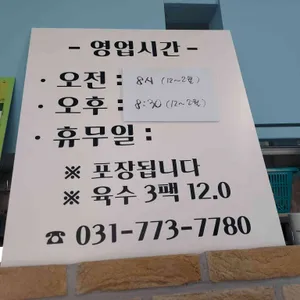 - 영업시간 -
· 오전 : 8시 (12~2월)
· 오후 : 8:30 (12~2월)
· 휴무일 :
※ 포장됩니다
※ 육수 3팩 12.0
☎ 031-773-7780